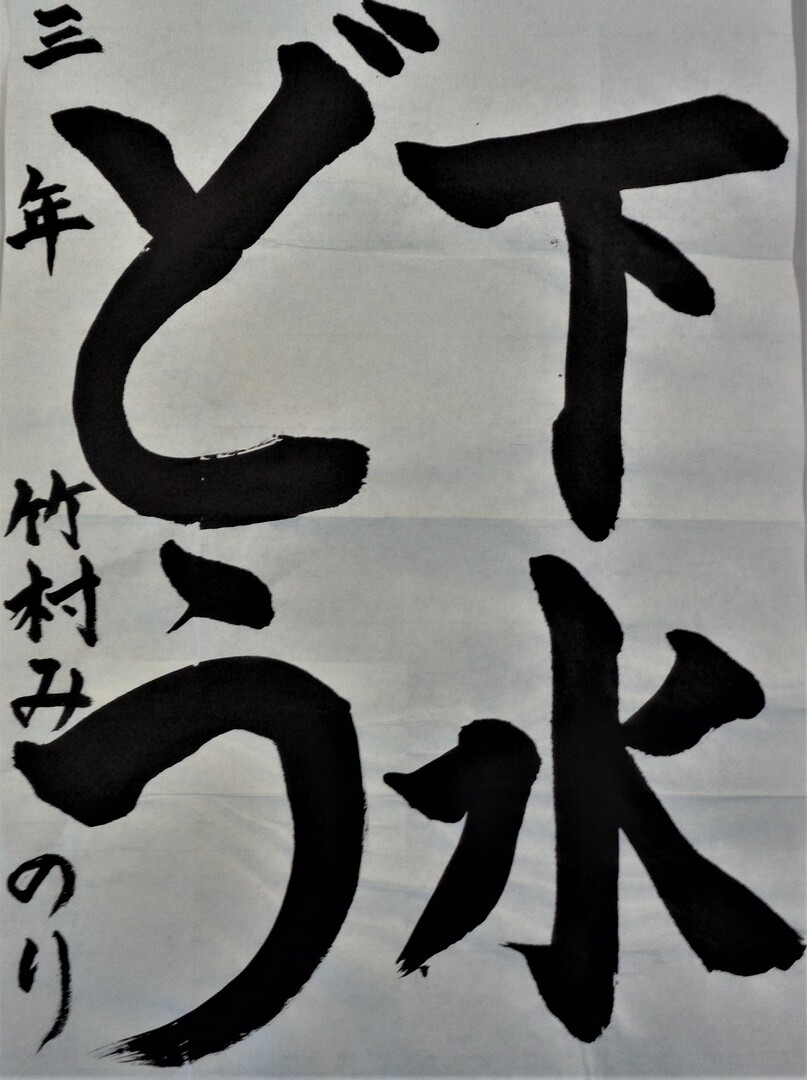 下水
どう
三年 竹村みのり